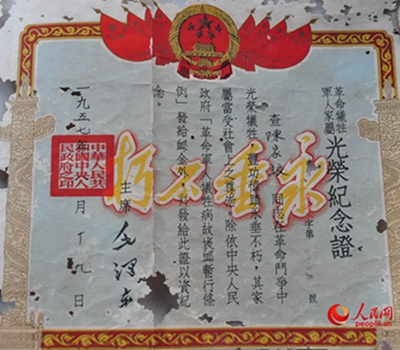 革命犧牲
軍人家屬
光榮紀念證
字第 號
查陳 同志在革命鬥爭中
光榮犧牲，豐功偉績永垂不朽，其家
屬當受社會上之尊崇。除依中央人民
政府「革命軍人犧牲病故褒恤暫行條
例」發給恤金外，並發給此證以資紀
念。
主席 毛澤東
一九五七年 月十九日
中華人民共
和國中央人
民政府之印
永垂不朽
人民网
people.cn